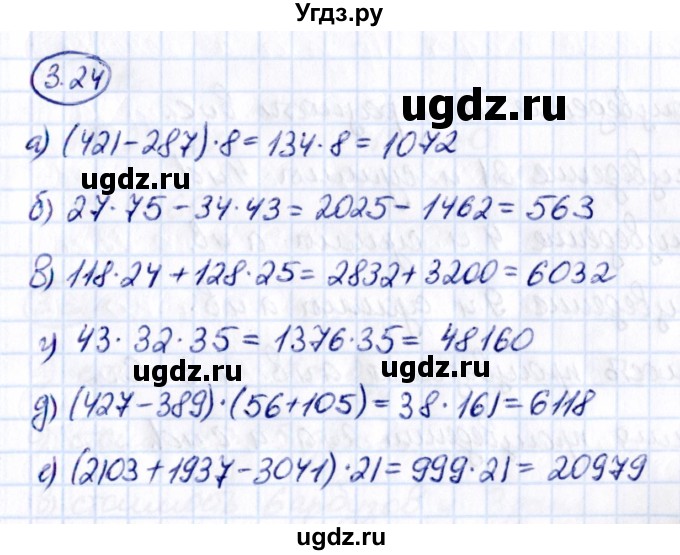 Угдз.ру
3.24
ugdz.ru
а) (421-287)·8=134·8=1072
ugdz.ru
б) 27·75-34·43=2025-1462=563
в) 118·24+128·25=2832+3200=6032
г) 43·32·35=1376·35=48160
ugdz.ru ugdz.ru
д) (427-389)·(56+105)=38·161=6118
е) (2103+1937-3041)·21=999·21=20979
ugdz.ru